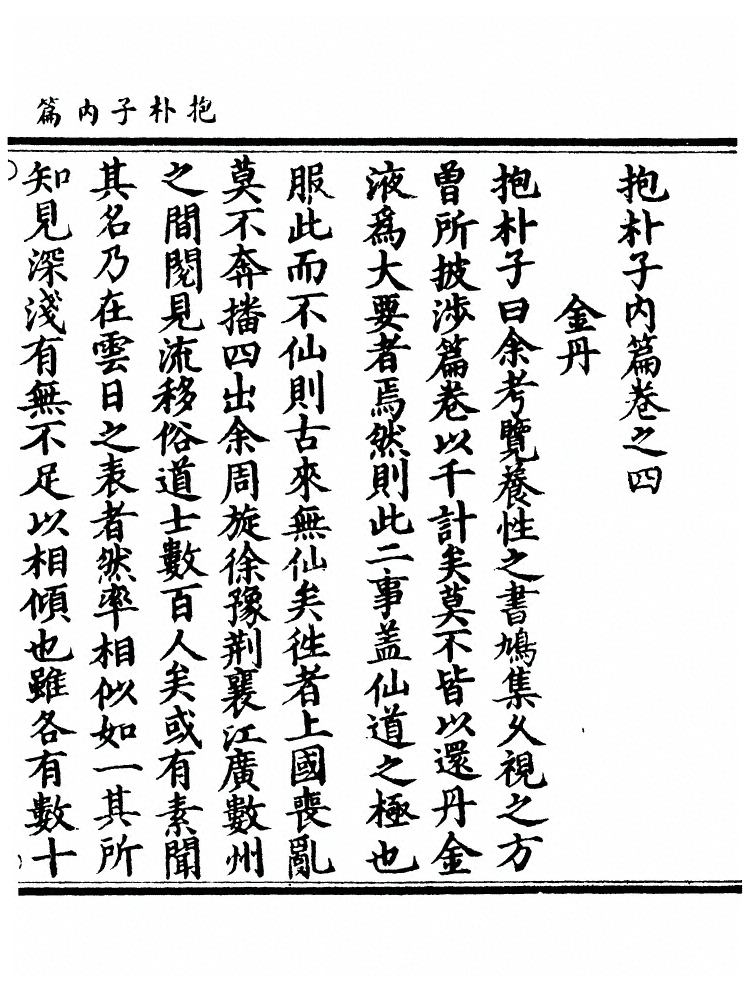 抱朴子內篇
抱朴子內篇卷之四
金丹
抱朴子曰余考覽養性之書鳩集久視之方
曾所披涉篇卷以千計矣莫不皆以還丹金
液爲大要者焉然則此二事盖仙道之極也
服此而不仙則古來無仙矣徃者上國喪亂
莫不奔播四出余周旋徐豫荆襄江廣數州
之間閱見流移俗道士數百人矣或有素聞
其名乃在雲日之表者然率相似如一其所
知見深淺有無不足以相傾也雖各有數十